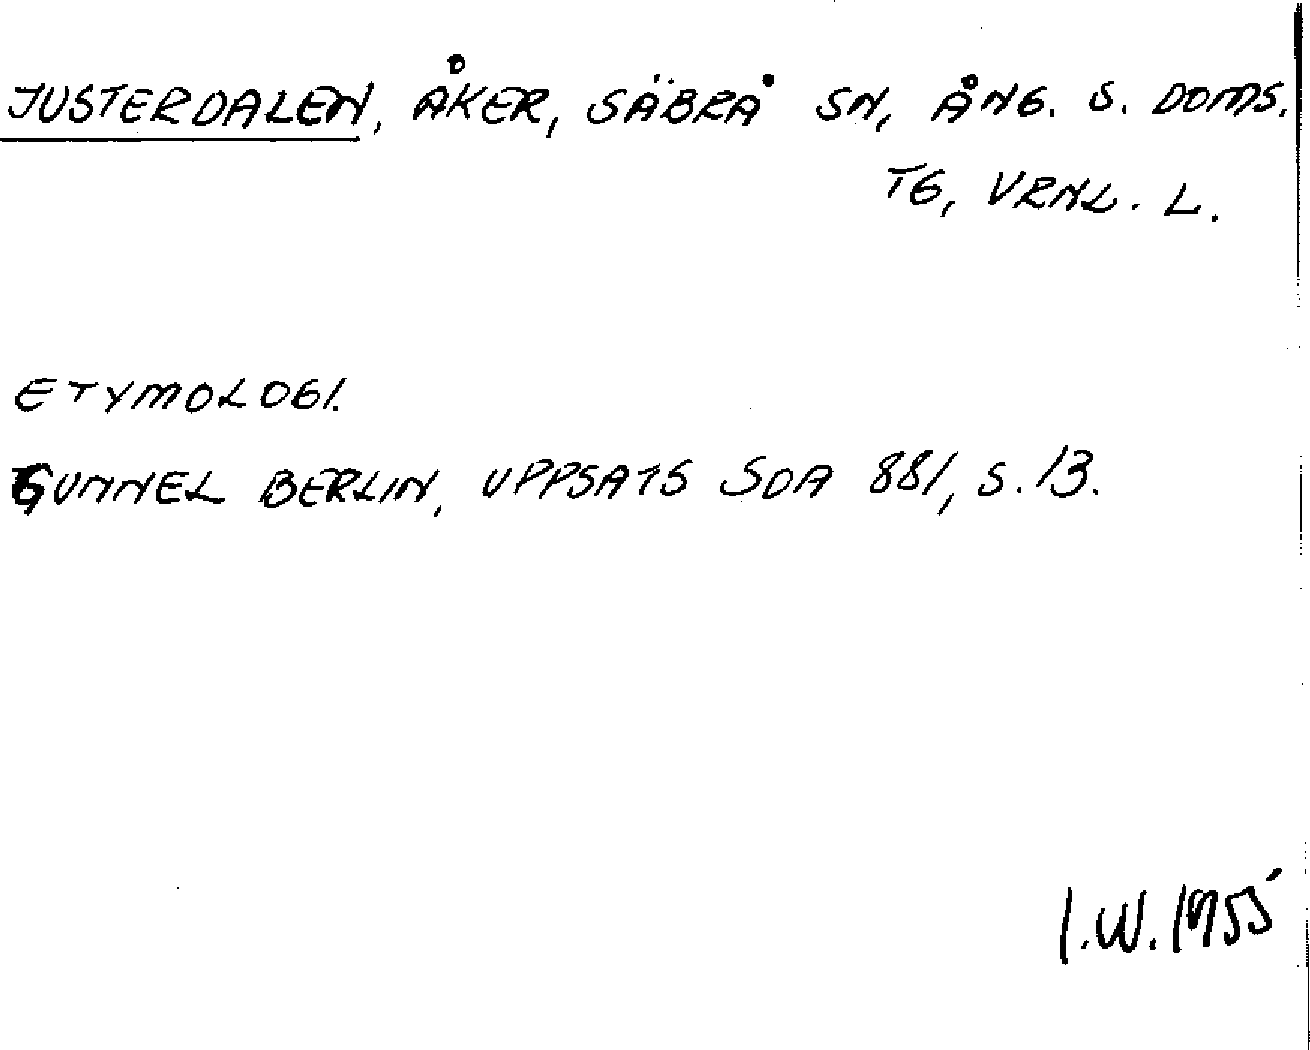 JUSTERDALEN, ÅKER, SÄBRÅ SN, ÅNG. S. DOMS.
TG, VRNL. L.
ETYMOLOGI.
GUNNEL BERLIN, UPPSATS SOA 881, S. 13.
I.W. 1955